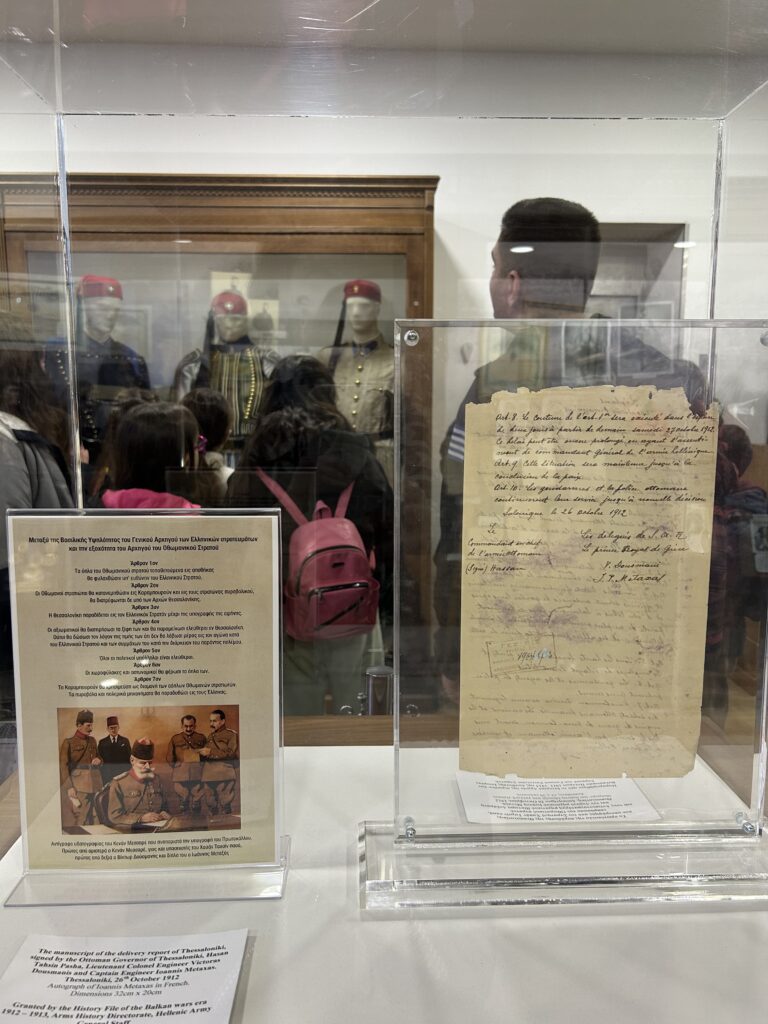 Μεταξύ της Βασιλικής Υψηλότητος του Γενικού Αρχηγού των Ελληνικών στρατευμάτων
και την εξοχότητα του Αρχηγού του Οθωμανικού Στρατού
Άρθρον 1ον
Τα όπλα του Οθωμανικού στρατού τοποθετούμενα εις αποθήκας
θα φυλαχθώσιν υπ' ευθύνην του Ελληνικού Στρατού.
Άρθρον 2ον
Οι Οθωμανοί στρατιώται θα κατανεμηθώσιν εις Καραμπουρνού και εις τους στρατώνας πυροβολικού,
θα διατρέφωνται δε υπό των Αρχών Θεσσαλονίκης.
Άρθρον 3ον
Η Θεσσαλονίκη παραδίδεται εις τον Ελληνικόν Στρατόν μέχρι της υπογραφής της ειρήνης.
Άρθρον 4ον
Οι αξιωματικοί θα διατηρήσωσι τα ξίφη των και θα παραμείνωσι ελεύθεροι εν Θεσσαλονίκη.
Ούτοι θα δώσωσι τον λόγον της τιμής των ότι δεν θα λάβωσι μέρος εις τον αγώνα κατά
του Ελληνικού Στρατού και των συμμάχων του κατά την διάρκειαν του παρόντος πολέμου.
Άρθρον 5ον
Όλοι οι πολιτικοί υπάλληλοι είναι ελεύθεροι.
Άρθρον 6ον
Οι χωροφύλακες και αστυνομικοί θα φέρωσι τα όπλα των.
Άρθρον 7ον
Το Καραμπουρνού θα χρησιμεύση ως διαμονή των αόπλων Οθωμανών στρατιωτών.
Τα πυροβόλα και πολεμικά μηχανήματα θα παραδοθώσι εις τους Έλληνας.
Αντίγραφο υδατογραφίας του Κενάν Μεσσαρέ που αναπαριστά την υπογραφή του Πρωτοκόλλου.
Πρώτος από αριστερά ο Κενάν Μεσσαρέ, γιος και υπασπιστής του Χασάν Ταχσίν πασά,
πρώτος από δεξιά ο Βίκτωρ Δούσμανης και δίπλα του ο Ιωάννης Μεταξάς
Art. 8. Le contenu de l'art. 1er sera exécuté dans l'espace
de deux jours à partir de demain samedi 27 octobre 1912.
Ce délai peut être encore prolongé, en ayant l'assenti-
ment du commandant Général de l'armée hellénique
Art. 9. Cette situation sera maintenue jusqu'à la
conclusion de la paix.
Art. 10. Les gendarmes et la police ottomane
continueront leur service jusqu'à nouvelle décision
Salonique le 26 octobre 1912
Le
Commandant en chef
de l'armée Ottomane
(Sgn) Hassan
Les délégués de S. A. R.
Le prince Royal de Grèce
V. Dousmani
J. P. Metaxas
The manuscript of the delivery report of Thessaloniki,
signed by the Ottoman Governor of Thessaloniki, Hasan
Tahsin Pasha, Lieutenant Colonel Engineer Victoras
Dousmanis and Captain Engineer Ioannis Metaxas.
Thessaloniki, 26th October 1912
Autograph of Ioannis Metaxas in French.
Dimensions 32cm x 20cm
Granted by the History File of the Balkan wars era
1912 – 1913, Arms History Directorate, Hellenic Army
General Staff